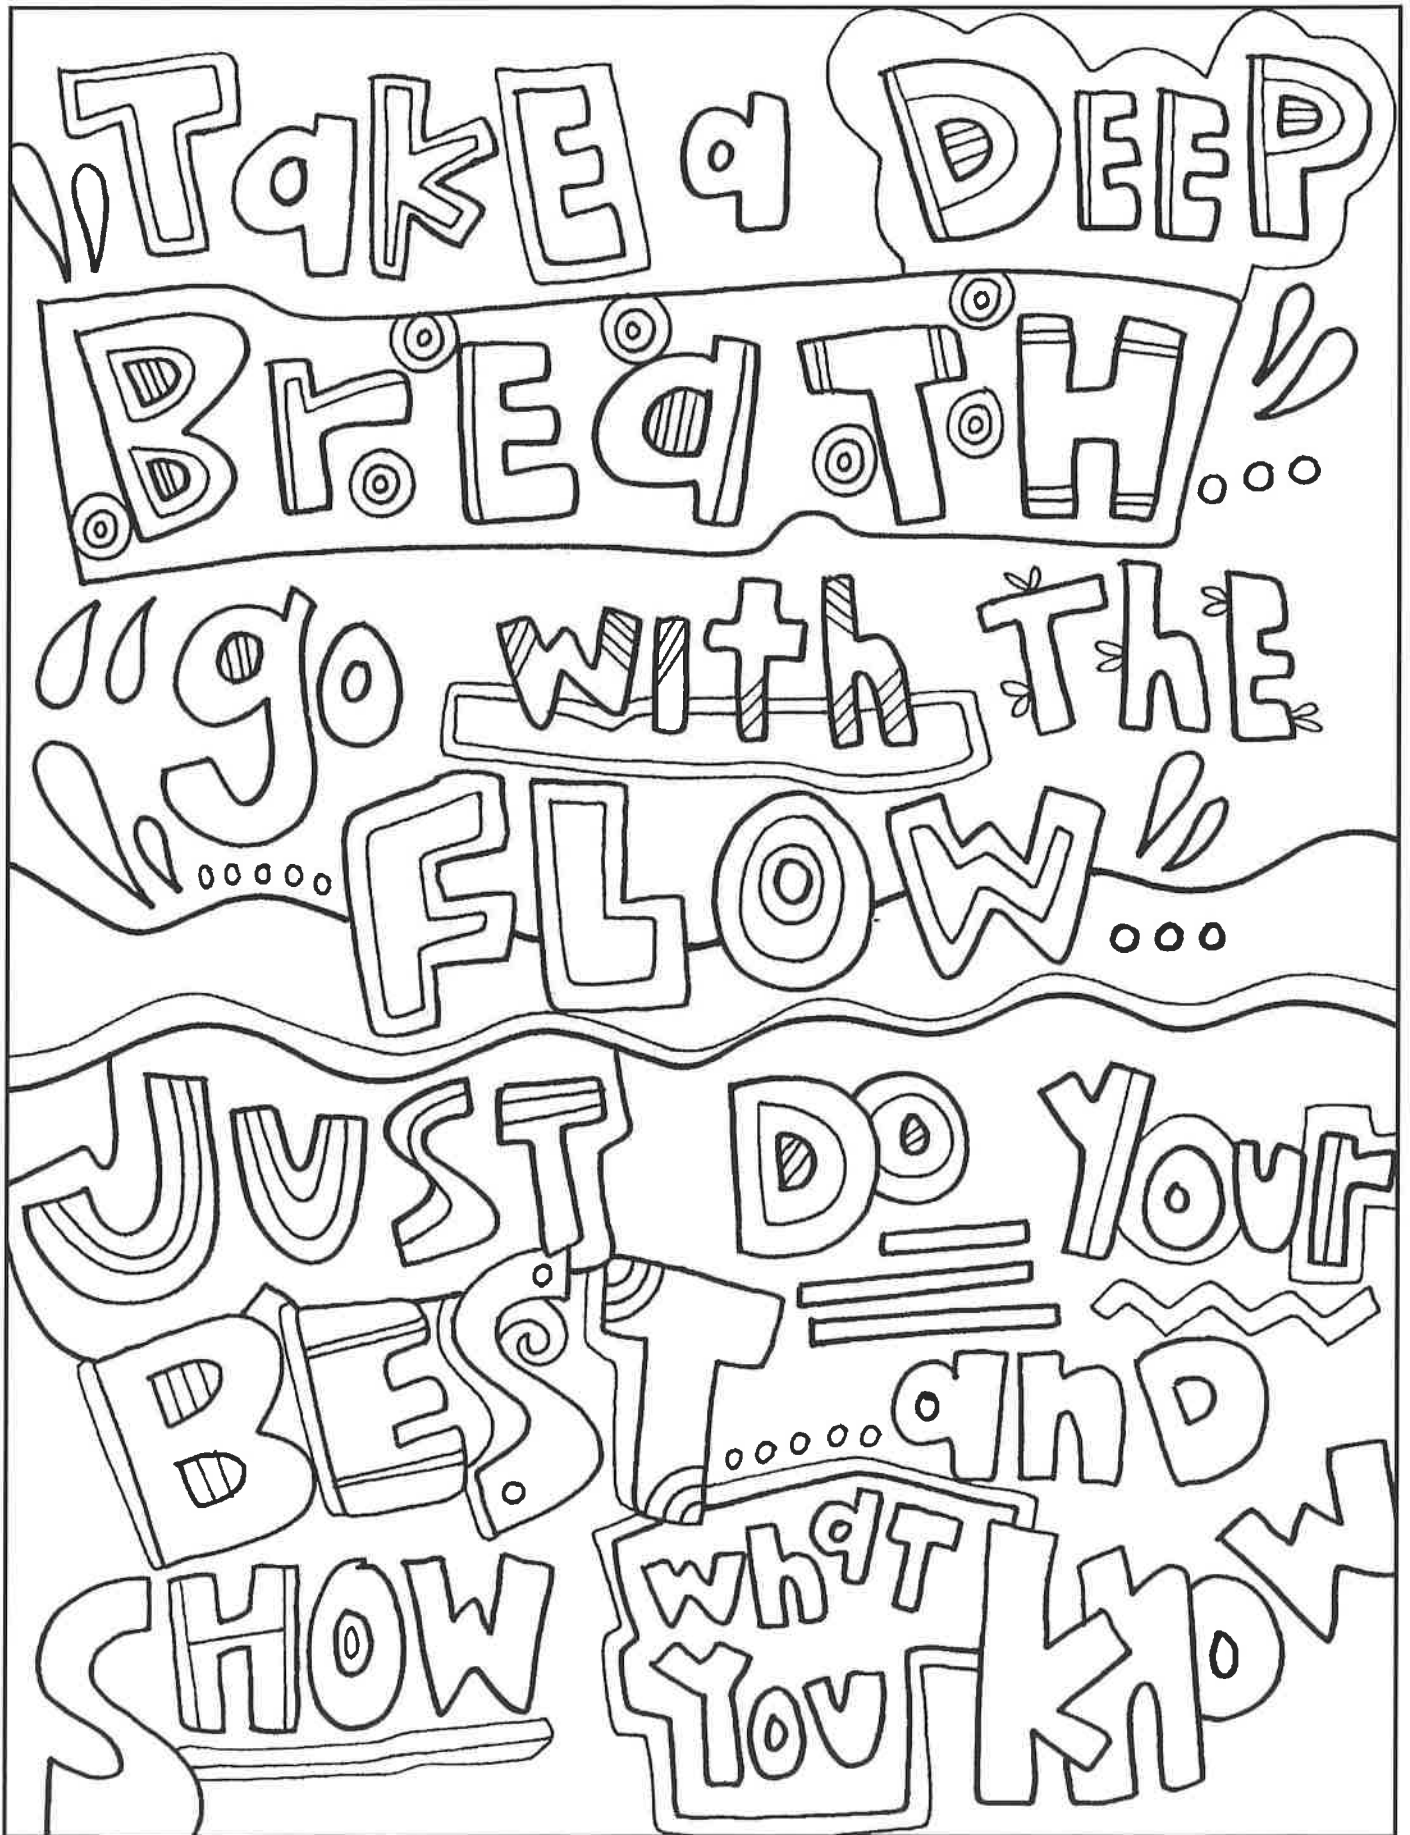 Take a DEEP
BreaTH...
go with The
FLOW...
JUST Do Your
BEST.....and
SHOW what You Know